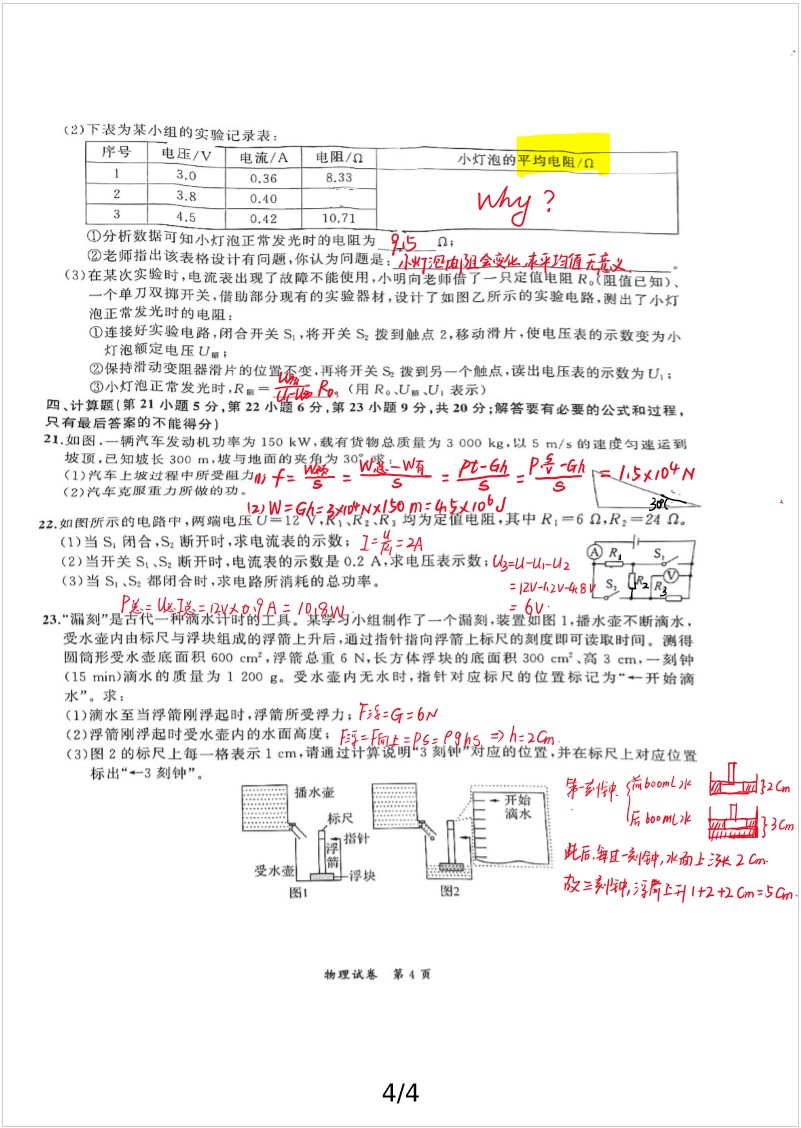 (2)下表为某小组的实验记录表:
序号 电压/V 电流/A 电阻/Ω 小灯泡的平均电阻/Ω
1 3.0 0.36 8.33
2 3.8 0.40
3 4.5 0.42 10.71
Why?
①分析数据可知小灯泡正常发光时的电阻为 9.5 Ω;
②老师指出该表格设计有问题,你认为问题是: 小灯泡电阻会变化,求平均值无意义 。
(3)在某次实验时,电流表出现了故障不能使用,小明向老师借了一只定值电阻 R₀(阻值已知)、
一个单刀双掷开关,借助部分现有的实验器材,设计了如图乙所示的实验电路,测出了小灯
泡正常发光时的电阻:
①连接好实验电路,闭合开关 S₁,将开关 S₂ 拨到触点 2,移动滑片,使电压表的示数变为小
灯泡额定电压 U额;
②保持滑动变阻器滑片的位置不变,再将开关 S₂ 拨到另一个触点,读出电压表的示数为 U₁;
③小灯泡正常发光时,R额= U额/(U₁-U额) R₀。(用 R₀、U额、U₁ 表示)
四、计算题(第 21 小题 5 分,第 22 小题 6 分,第 23 小题 9 分,共 20 分;解答要有必要的公式和过程,
只有最后答案的不能得分)
21.如图,一辆汽车发动机功率为 150 kW,载有货物总质量为 3 000 kg,以 5 m/s 的速度匀速运到
坡顶,已知坡长 300 m,坡与地面的夹角为 30°,求:
(1)汽车上坡过程中所受阻力
(1) f = W额/s = (W总-W有)/s = (Pt-Gh)/s = = 1.5×10⁴N
(2)汽车克服重力所做的功。
30°
(2) W=Gh=3×10⁴N×150m=4.5×10⁶J
22.如图所示的电路中,两端电压 U=12 V,R₁、R₂、R₃ 均为定值电阻,其中 R₁=6 Ω,R₂=24 Ω。
(1)当 S₁ 闭合,S₂ 断开时,求电流表的示数; I=U/R₁=2A
(2)当开关 S₁、S₂ 断开时,电流表的示数是 0.2 A,求电压表示数; U₃=U-U₁-U₂
(3)当 S₁、S₂ 都闭合时,求电路所消耗的总功率。 =12V-1.2V-4.8V
=6V.
A R₁ S₁ S₂ R₂ V R₃
P总=U总I总=12V×0.9A=10.8W
23.“漏刻”是古代一种滴水计时的工具。某学习小组制作了一个漏刻,装置如图 1,播水壶不断滴水,
受水壶内由标尺与浮块组成的浮箭上升后,通过指针指向浮箭上标尺的刻度即可读取时间。测得
圆筒形受水壶底面积 600 cm²,浮箭总重 6 N,长方体浮块的底面积 300 cm²、高 3 cm,一刻钟
(15 min)滴水的质量为 1 200 g。受水壶内无水时,指针对应标尺的位置标记为“←开始滴
水”。求:
(1)滴水至当浮箭刚浮起时,浮箭所受浮力; F浮=G=6N
(2)浮箭刚浮起时受水壶内的水面高度; F浮=F向上=PS=ρghs ⇒h=2cm.
(3)图 2 的标尺上每一格表示 1 cm,请通过计算说明“3 刻钟”对应的位置,并在标尺上对应位置
标出“←3 刻钟”。
播水壶
标尺
指针
浮箭
受水壶
浮块
图1
开始
滴水
图2
第一刻钟 前600mL水 }2cm
后600mL水 }3cm
此后,每过一刻钟,水面上涨 2cm.
故三刻钟,浮箭上升 1+2+2cm=5cm.
物理试卷 第 4 页
4/4